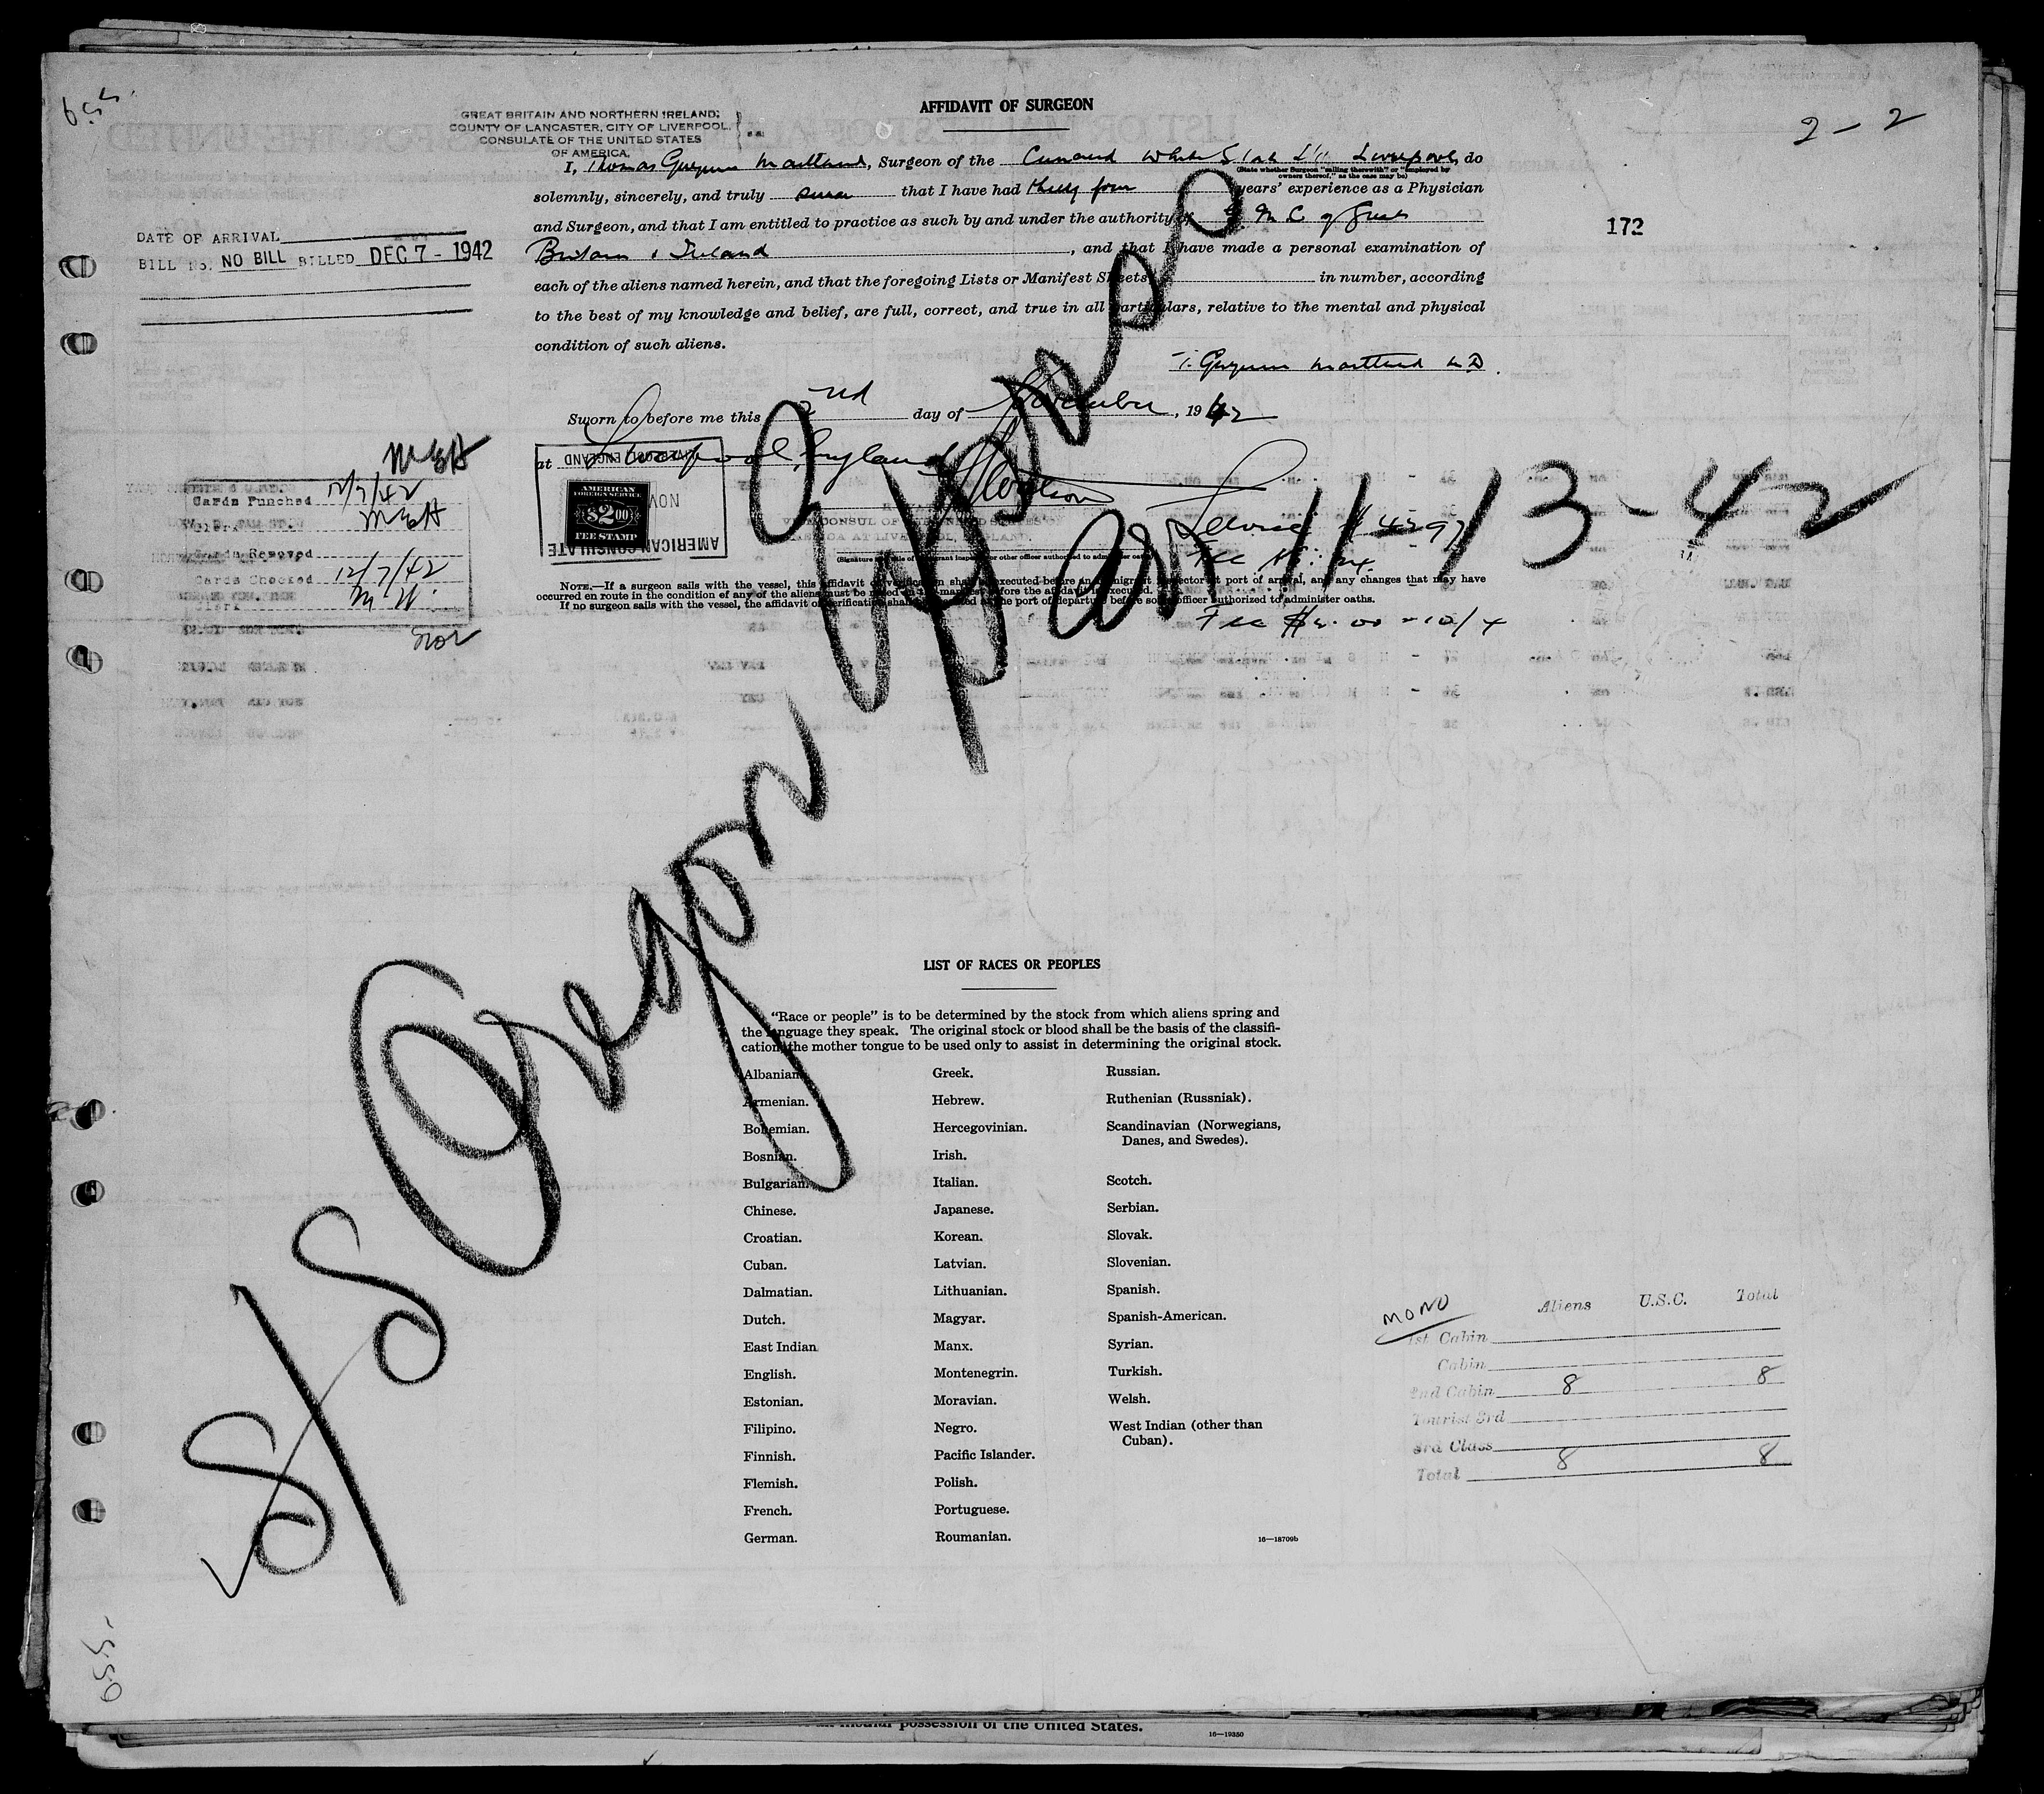 AFFIDAVIT OF SURGEON
2 - 2
GREAT BRITAIN AND NORTHERN IRELAND;
COUNTY OF LANCASTER, CITY OF LIVERPOOL,
CONSULATE OF THE UNITED STATES
OF AMERICA.
I, Thomas Maitland, Surgeon of the Cunard White Star Liverpool, do
(State whether Surgeon "sailing therewith" or "employed by
owners thereof," as the case may be)
solemnly, sincerely, and truly swear that I have had thirty four years' experience as a Physician
and Surgeon, and that I am entitled to practice as such by and under the authority of G M C of Great
Britain & Ireland, and that I have made a personal examination of
each of the aliens named herein, and that the foregoing Lists or Manifest Sheets in number, according
to the best of my knowledge and belief, are full, correct, and true in all particulars, relative to the mental and physical
condition of such aliens.
T. Maitland M.D.
Sworn to before me this 2nd day of November, 1942
at Liverpool, England
172
DATE OF ARRIVAL
BILL NO. NO BILL BILLED DEC 7 - 1942
MEH
Cards Punched 12/7/42
Clerk MEH
Cards Removed
Cards Checked 12/7/42
Clerk M H.
LIVERPOOL, ENGLAND
NOV
AMERICAN
FOREIGN SERVICE
$2.00
FEE STAMP
AMERICAN CONSULATE
CONSUL OF THE UNITED STATES
AMERICA AT LIVERPOOL, ENGLAND.
(Signature and title of immigrant inspector or other officer authorized to administer oaths)
Service # 4297
Fee $2.00 = 10/4
NOTE.—If a surgeon sails with the vessel, this affidavit of verification shall be executed before an immigrant inspector at port of arrival, and any changes that may have
occurred en route in the condition of any of the aliens must be noted on the manifest before the affidavit is executed.
If no surgeon sails with the vessel, the affidavit of verification shall be executed at the port of departure before some officer authorized to administer oaths.
S/S Oregon Express
arr 11/13-42
LIST OF RACES OR PEOPLES
"Race or people" is to be determined by the stock from which aliens spring and
the language they speak. The original stock or blood shall be the basis of the classifi-
cation, the mother tongue to be used only to assist in determining the original stock.
Albanian.
Armenian.
Bohemian.
Bosnian.
Bulgarian.
Chinese.
Croatian.
Cuban.
Dalmatian.
Dutch.
East Indian
English.
Estonian.
Filipino.
Finnish.
Flemish.
French.
German.
Greek.
Hebrew.
Hercegovinian.
Irish.
Italian.
Japanese.
Korean.
Latvian.
Lithuanian.
Magyar.
Manx.
Montenegrin.
Moravian.
Negro.
Pacific Islander.
Polish.
Portuguese.
Roumanian.
Russian.
Ruthenian (Russniak).
Scandinavian (Norwegians,
Danes, and Swedes).
Scotch.
Serbian.
Slovak.
Slovenian.
Spanish.
Spanish-American.
Syrian.
Turkish.
Welsh.
West Indian (other than
Cuban).
16—18709b
MONO
Aliens U.S.C. Total
1st Cabin
Cabin
2nd Cabin 8 8
Tourist 3rd
3rd Class
Total 8 8
possession of the United States.
16—19350